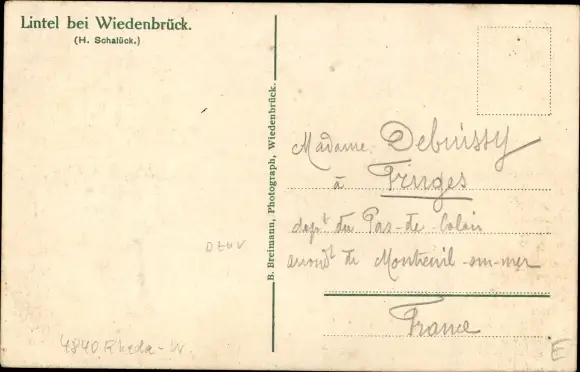 Lintel bei Wiedenbrück.
(H. Schalück.)
B. Breimann, Photograph, Wiedenbrück.
Madame Debuissy
à
Fruges
dépt du Pas-de-Calais
arrondt de Montreuil-sur-mer
France
4840 Rheda-W
E